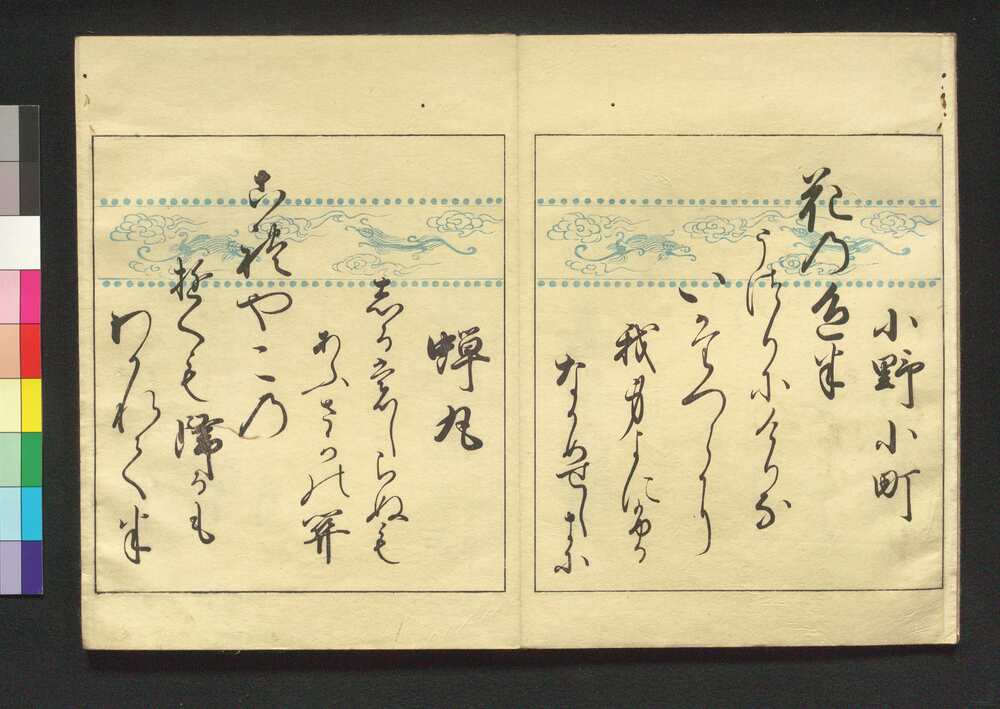 小野小町
花の色は
うつりにけりな
いたつらに
我身よにふる
なかめせしまに
蝉丸
これやこの
ゆくも帰るも
わかれては
しるもしらぬも
あふさかの関